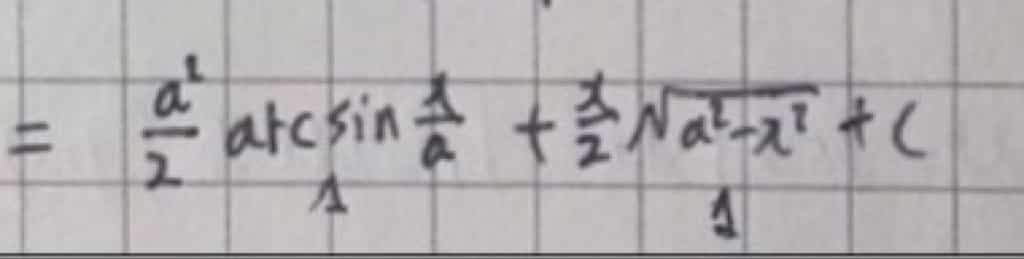 = a²/2 arcsin x/a + x/2 √(a²-x²) + C
1 1